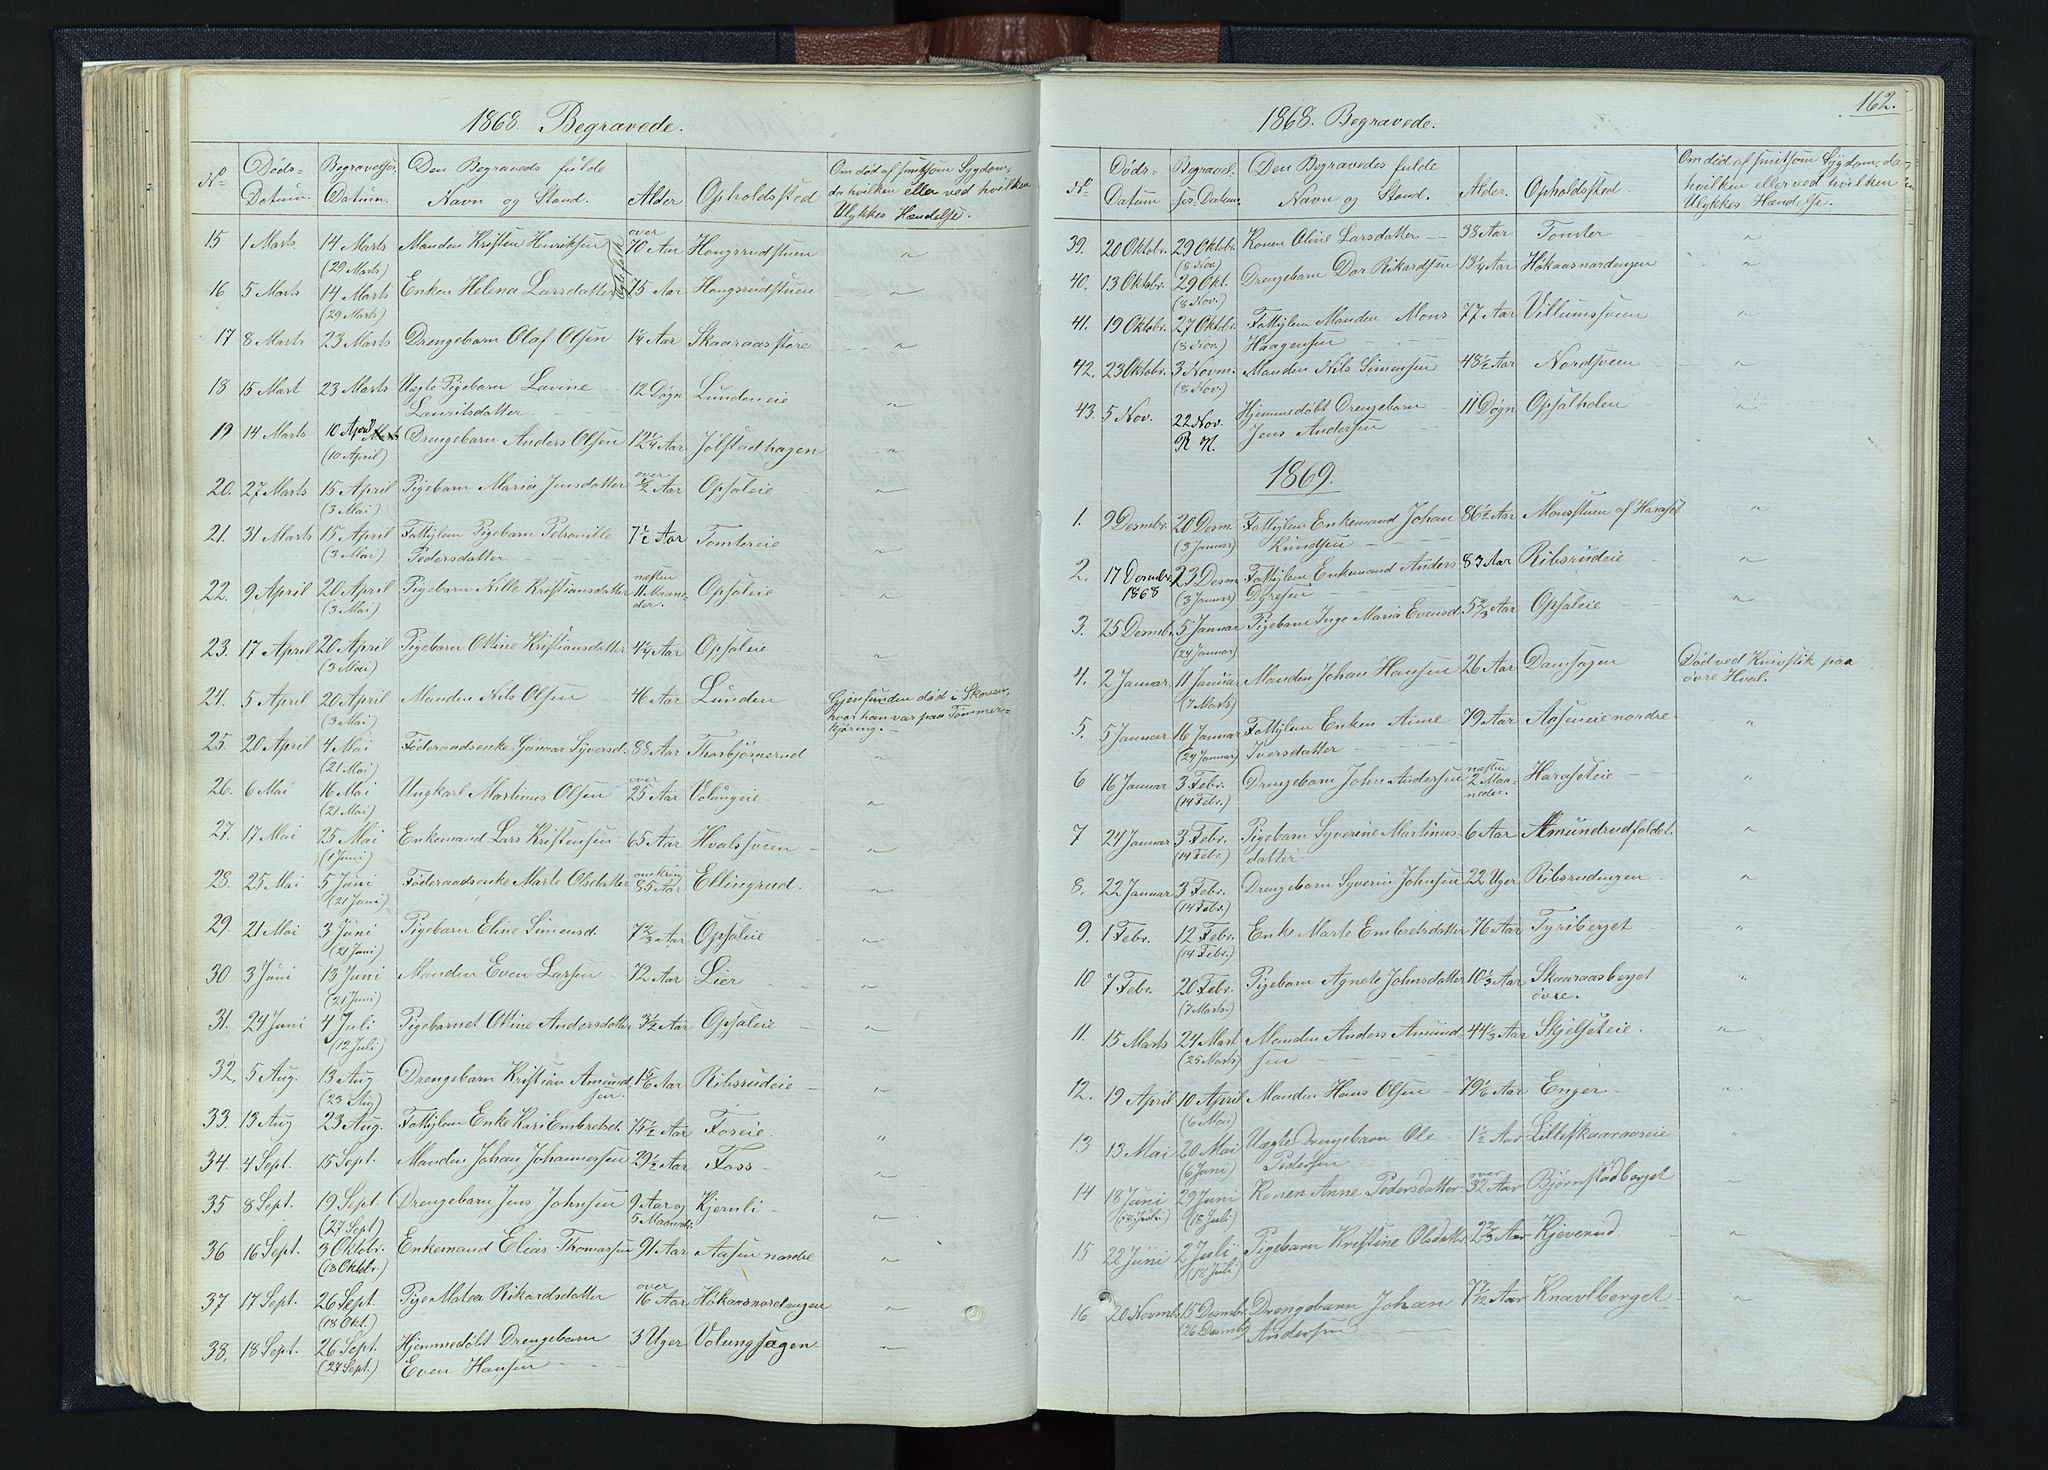 1868. Begravede.
No Døds- Datum. Begravelses Datum. Den Begraveds fulde Navn og Stand. Alder Opholdssted Om død af smitsom Sygdom, da hvilken eller ved hvilken Ulykkes Hændelse.
15 1 Marts 14 Marts (29 Marts) Manden Kristen Henriksen over 70 Aar Haugsrudstuen "
16 5 Marts 14 Marts (29 Marts) Enken Helena Larsdatter 75 Aar Haugsrudstuen "
17 8 Marts 23 Marts Drengebarn Olaf Olsen 1¼ Aar Skaaraasstøre "
18 15 Mart 23 Marts Uægte Pigebarn Lavine
Lauritsdatter 12 Døgn Lundeneie "
19 14 Marts 10 April (10 April) Drengebarn Anders Olsen 12¼ Aar Jølstadhagen "
20. 27 Marts 15 April (3 Mai) Pigebarn Maria Jensdatter over ½ Aar Opsaleie "
21. 31 Marts 15 April (3 Mai) Fattiglem Pigebarn Petronille
Pedersdatter 7½ Aar Tomtereie "
22. 9 April 20 April (3 Mai) Pigebarn Nille Kristiansdatter næsten 11 Maaneder. Opsaleie "
23. 17 April 20 April (3 Mai) Pigebarn Ottine Kristiansdatter 4¼ Aar Opsaleie "
24. 5 April 20 April (3 Mai) Manden Nils Olsen 46 Aar Lunden Gjenfunden død i Skoven,
hvor han var paa Tømmer-
kjøring.
25. 20 April 4 Mai (21 Mai) Føderaadsenke Gunvar Syversd. 88 Aar Thorbjørnsrud "
26. 6 Mai 16 Mai (21 Mai) Ungkarl Martinus Olsen over 25 Aar Volungeie "
27. 17 Mai 25 Mai (1 Juni) Enkemand Lars Kristensen 65 Aar Hvalssveen "
28. 25 Mai 5 Juni (21 Juni) Føderaadsenke Marte Olsdatter omkring 85 Aar Ellingrud. "
29 21 Mai 3 Juni (21 Juni) Pigebarn Eline Simensd. 7⅔ Aar Opsaleie "
30 3 Juni 13 Juni (21 Juni) Manden Even Larsen 72 Aar Lier "
31. 24 Juni 4 Juli (12 Juli) Pigebarnet Ottine Andersdatter 3½ Aar Opsaleie "
32, 5 Aug. 13 Aug (23 Aug) Drengebarn Kristian Amund
sen. 1⅚ Aar Ribsrudeie "
33. 13 Aug 23 Aug. Fattiglem Enke Kari Embretsd. 75½ Aar Foseie. "
34. 4 Sept. 15 Sept. Manden Johan Johannessen 29½ Aar Foss "
35 8 Sept. 19 Sept. (27 Sept) Drengebarn Jens Johnsen 9 Aar og 5 Maaneder Kjernli "
36 16 Sept. 3 Oktobr. (18 Oktbr.) Enkemand Elias Thomassen 91 Aar Aasen nordre "
37 17 Sept. 26 Sept. (18 Okt.) Pige Matea Rikardsdatter over 16 Aar Høkaasnordengen "
38, 18 Sept. 26 Sept. (27 Sept.) Hjemmedøbt Drengebarn
Even Hansen 3 Uger Volungsagen "
162.
1868. Begravede.
No Døds- Datum Begravelses-Datum. Den Begravedes fulde Navn og Stand. Alder. Opholdssted Om død af smitsom Sygdom, da hvilken eller ved hvilken Ulykkes Hændelse.
39. 20 Oktobr. 29 Oktobr. (8 Nov) Konen Oline Larsdatter 38 Aar Tomter "
40. 13 Oktobr. 29 Okt. (8 Nov.) Drengebarn Dor Rikardsen 13¼ Aar Høkaasnordengen "
41. 19 Oktobr. 27 Oktbr. (8 Nov.) Fattiglem Manden Mons
Haagensen 77 Aar Villumsveen "
42. 23 Oktobr. 3 Novm. (8 Nov.) Manden Nils Simensen 48½ Aar Nordsveen "
43. 5 Nov. 22 Nov. R N. Hjemmedøbt Drengebarn
Jens Andersen 11 Døgn Opsalholen "
1869.
1. 9 Desmbr. 20 Desm. (3 Januar) Fattiglem Enkemand Johan
Knudsen 86½ Aar Monsstuen af Haraset "
2. 17 Desmbr. 1868 23 Desm. (3 Januar) Fattiglem Enkemand Anders
Dyresen 83 Aar Ribsrudeie "
3. 25 Desmbr. 5 Januar (24 Januar) Pigebarn Inge Maria Evensd. 5⅔ Aar Opsaleie "
4. 2 Januar 11 Januar (7 Marts) Manden Johan Hansen 26 Aar Damsagen Død ved Knivstik paa
øvre Hval.
5. 5 Januar 16 Januar (24 Januar) Fattiglem Enken Anne
Iversdatter 79 Aar Aaseneie nordre "
6 16 Januar 3 Febr. (14 Febr.) Drengebarn John Andersen næsten 2 Maaneder. Haraseteie "
7 24 Januar 3 Febr. (14 Febr.) Pigebarn Syverine Martinus-
datter 6 Aar Amundrudfaldet. "
8. 22 Januar 3 Febr. (14 Febr.) Drengebarn Syverin Johnsen 22 Uger Ribsrudengen. "
9. 1 Febr. 12 Febr. (14 Febr.) Enke Marte Embretsdatter 76 Aar Tyriberget "
10 7 Febr. 20 Febr. (7 Marts.) Pigebarn Agnete Johnsdatter 10⅓ Aar Skaaraasberget
øvre. "
11. 15 Marts 24 Mart (25 Marts) Manden Anders Amund-
sen 44⅓ Aar Skjelseteie. "
12. 19 April 10 April (6 Mai) Manden Hans Olsen 79½ Aar Enger "
13 13 Mai 20 Mai (6 Juni) Uægte Drengebarn Ole
Pedersen 1½ Aar Lilleskaaraaseie "
14 18 Juni (18 Juli) 29 Juni (18 Juli) Konen Anne Pedersdatter over 32 Aar Bjørnstadberget "
15 22 Juni 2 Juli (18 Juli) Pigebarn Kristine Olsdattr. 2⅔ Aar Kjeverud "
16 20 Novmb. 15 Desmbr. (26 Desmbr) Drengebarn Johan
Andersen 7 7/12 Aar Knavlberget "